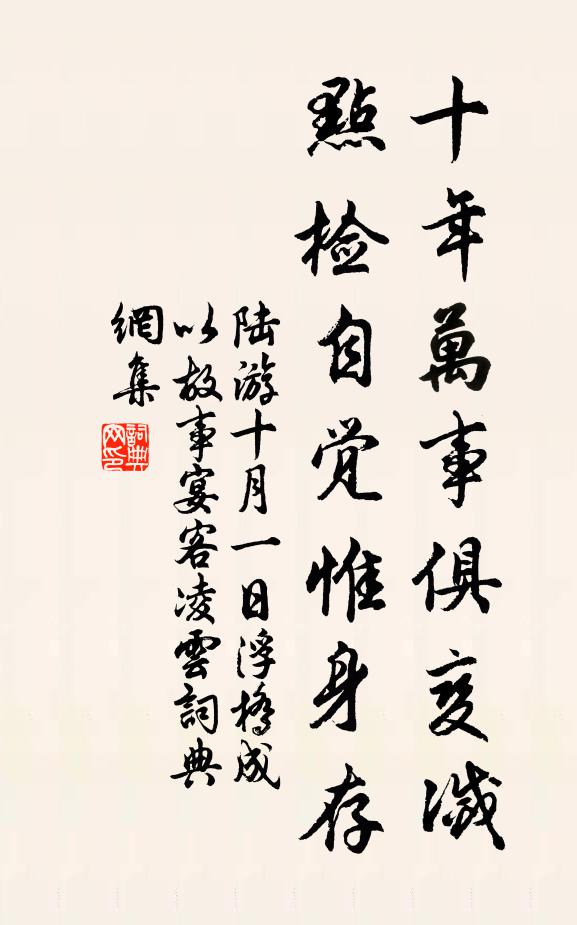 十年萬事俱变滅
點检自觉惟身存
陆游十月一日浮橋成
以故事宴客凌雲詞典
網集
詞典
网印